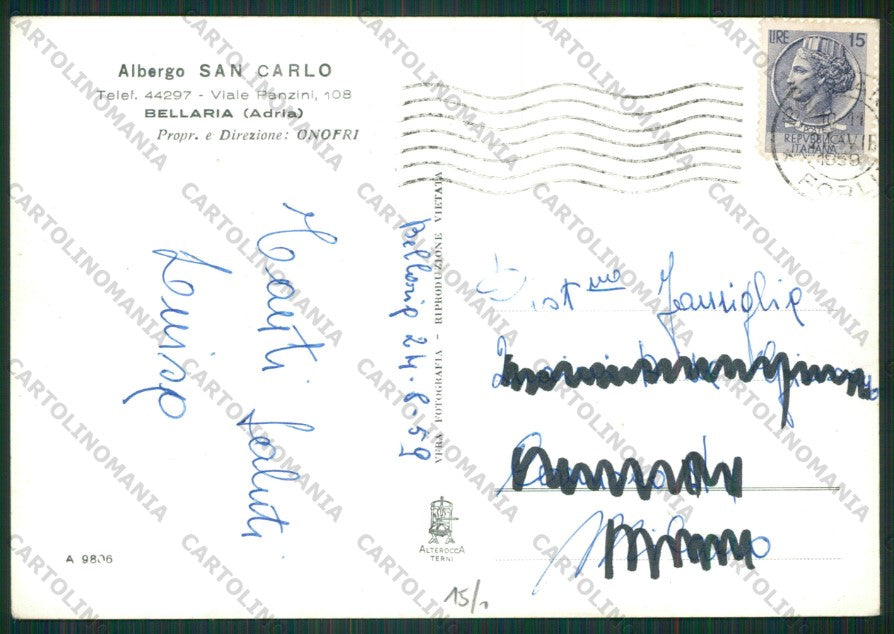 Albergo SAN CARLO
Telef. 44297 - Viale Panzini, 108
BELLARIA (Adria)
Propr. e Direzione: ONOFRI
LIRE 15
REPVBBLICA
ITALIANA
1959
FORLI
Tanti saluti
Luisa
Bellaria 24.8.59
VERA FOTOGRAFIA - RIPRODUZIONE VIETATA
Dist.ma Famiglia
Milano
ALTEROCCA
TERNI
A 9806
15/1
CARTOLINOMANIA